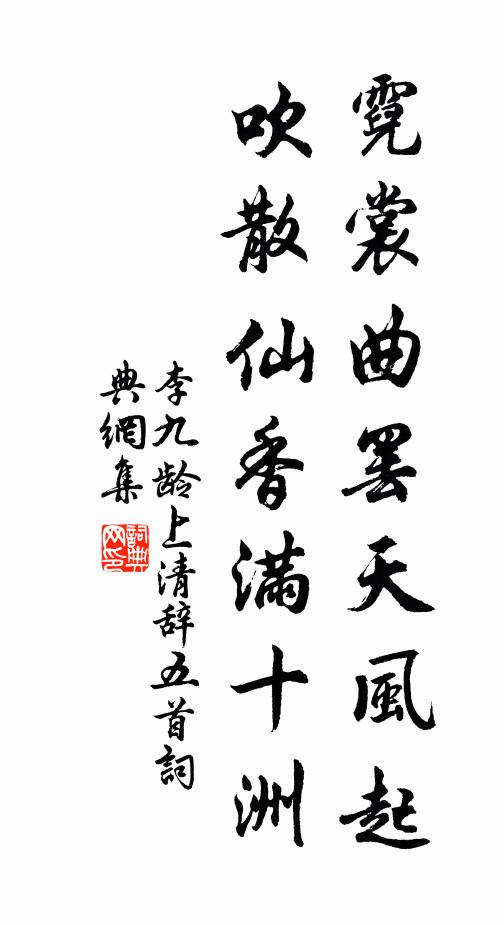 霓裳曲罢天風起
吹散仙香满十洲
李九龄上清辞五首詞
典網集
詞典
网印